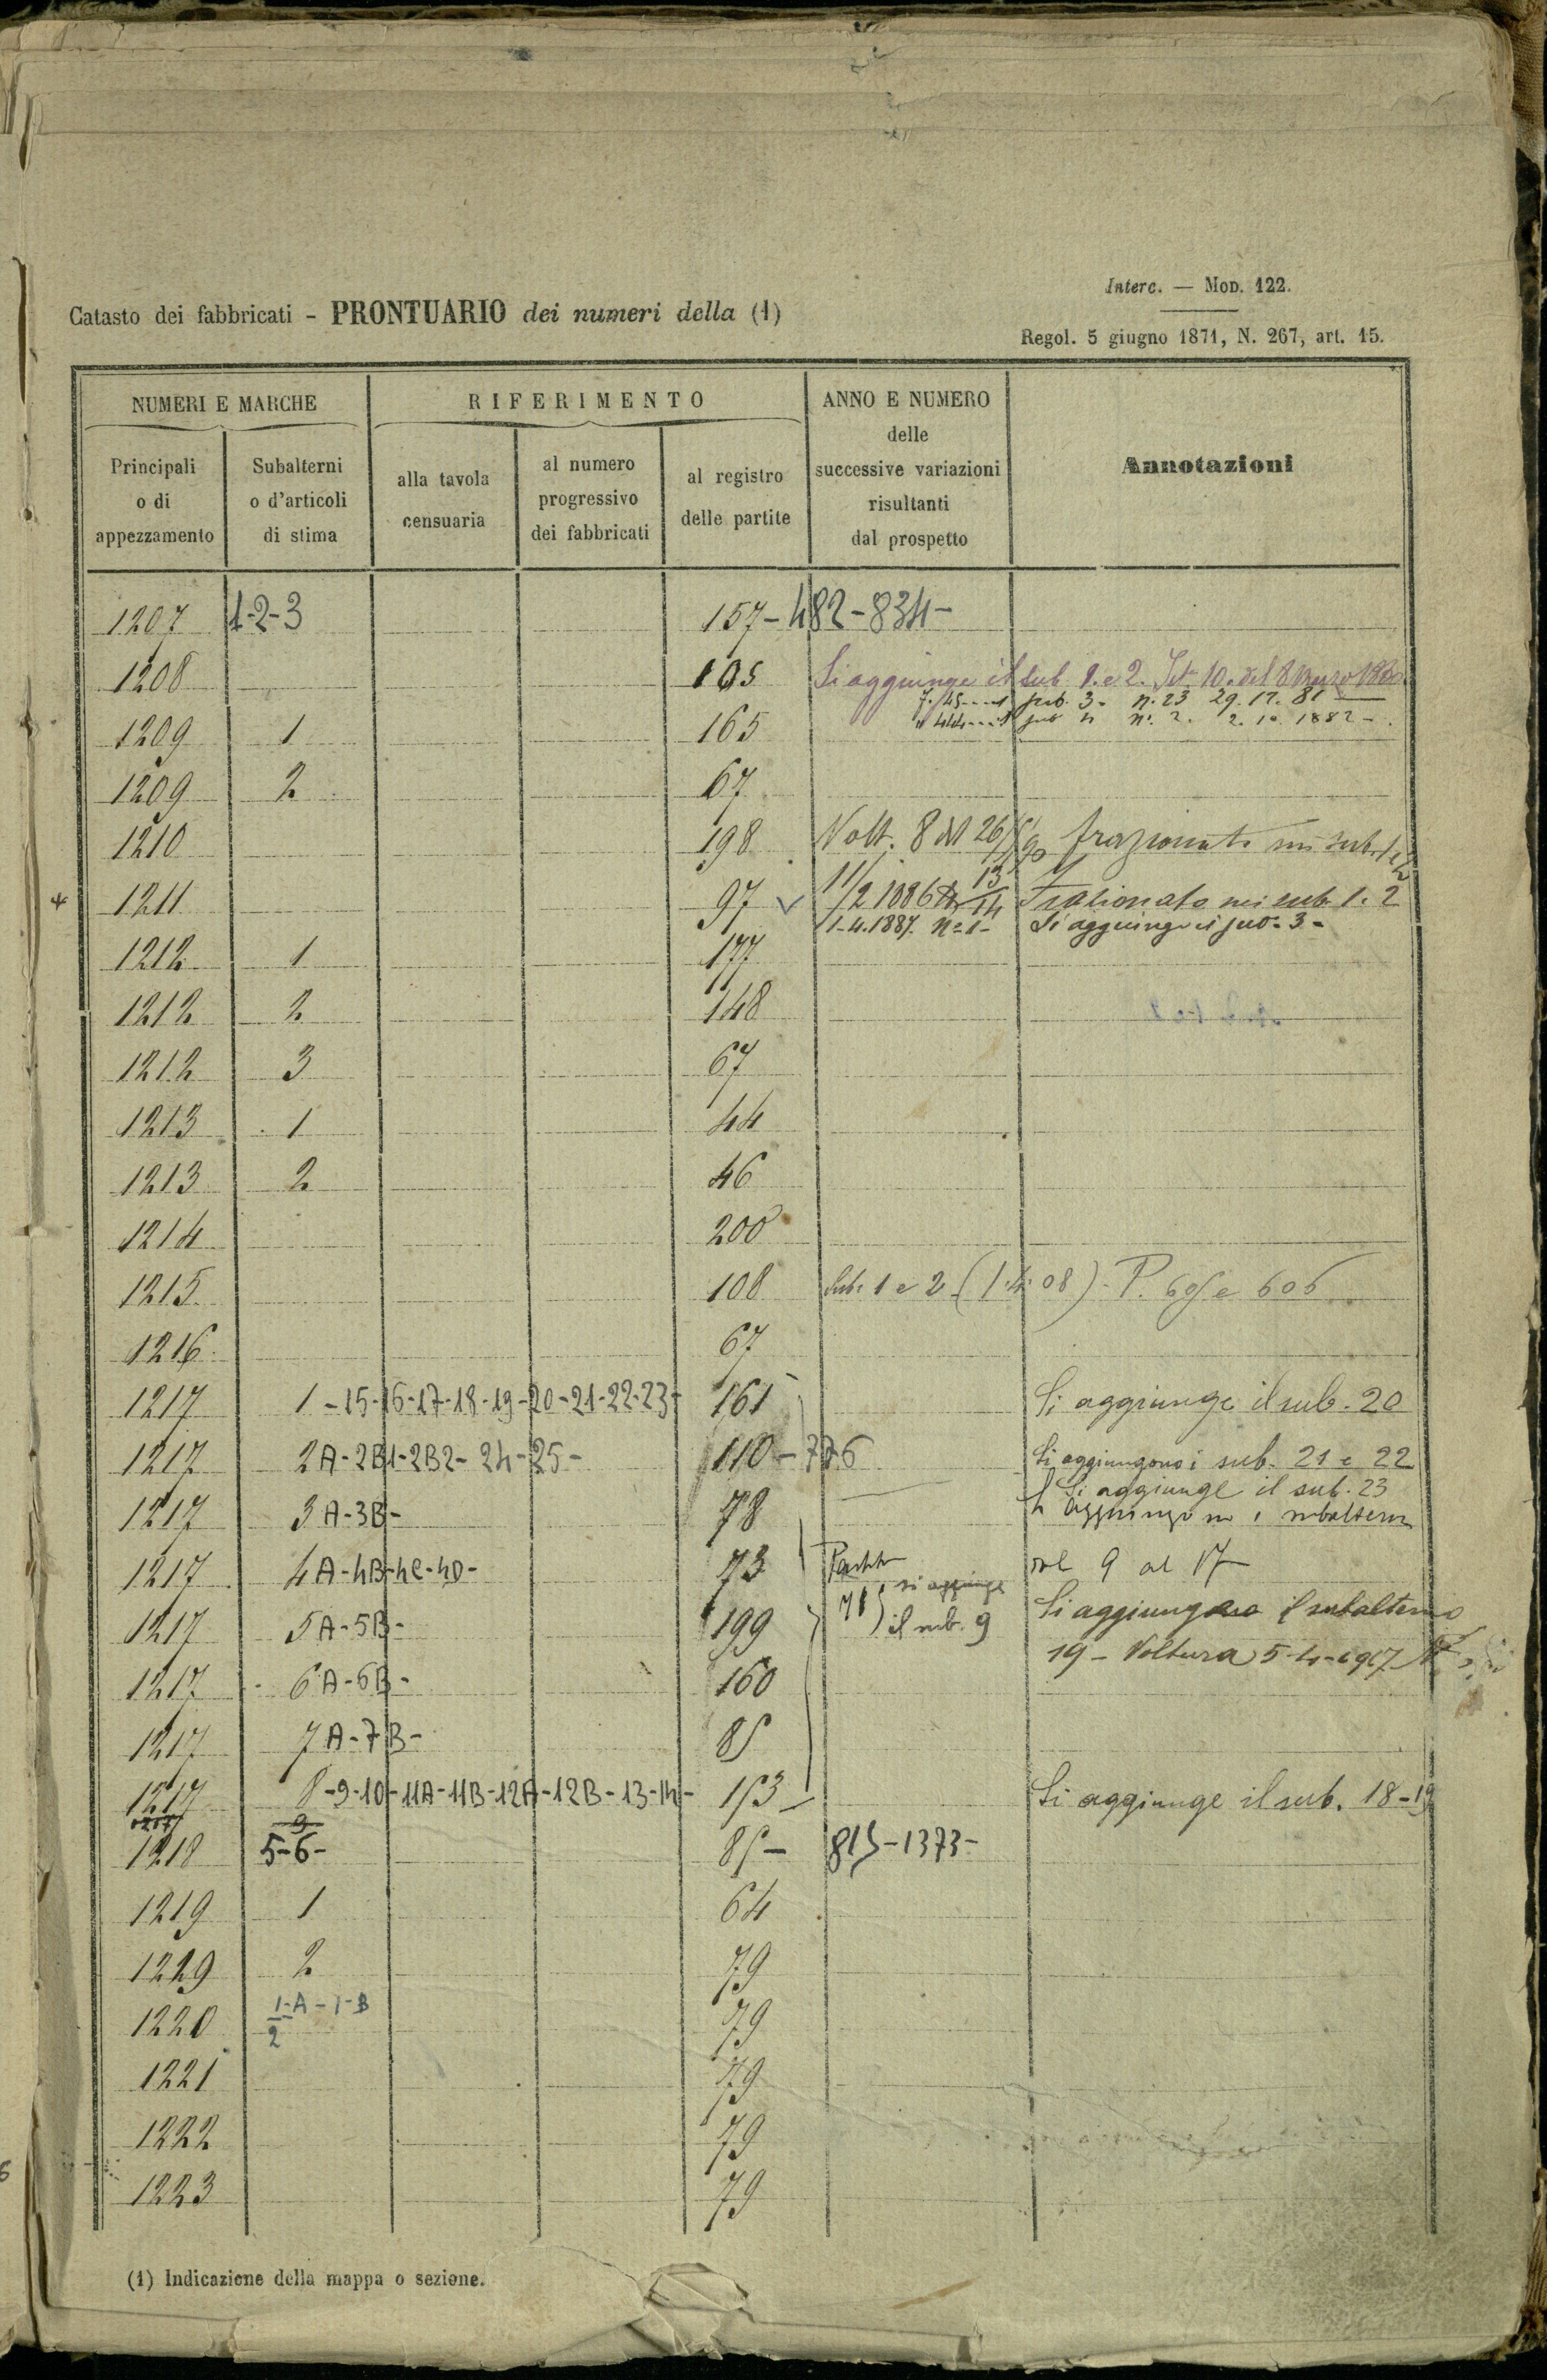 Interc. — Mod. 122.
Catasto dei fabbricati - PRONTUARIO dei numeri della (1)
Regol. 5 giugno 1871, N. 267, art. 15.
NUMERI E MARCHE
RIFERIMENTO
ANNO E NUMERO
delle
successive variazioni
risultanti
dal prospetto
Annotazioni
Principali
o di
appezzamento
Subalterni
o d'articoli
di stima
alla tavola
censuaria
al numero
progressivo
dei fabbricati
al registro
delle partite
1207 1-2-3 157-482-834-
1208 105 Si aggiunge il sub. 1. e 2. 10. del 8 Marzo
sub. 3. n. 23 29. 12. 81
1209 1 165 n. 2. 2. 10. 1882 -
1209 2 67
1210 198 Volt. 8 del 26 frazionato nei sub. 1 e 2
1211 97 11/2 1886 13/14 Frazionato nei sub. 1. 2
1-4.1887. No 1- Si aggiunge il sub. 3-
1212 1 177
1212 2 148
1212 3 67
1213 1 44
1213 2 46
1214 200
1215 108 Sub. 1 e 2 (1.4.08). P. 605 e 606
1216 67
1217 1-15-16-17-18-19-20-21-22-23- 161 Si aggiunge il sub. 20
1217 2A-2B1-2B2-24-25- 110-776 Si aggiungono i sub. 21 e 22
Si aggiunge il sub. 23
1217 3A-3B- 78 Si aggiungono i subalterni
1217 4A-4B-4C-4D- 73 Partita dal 9 al 17
si aggiunge
1217 5A-5B- 199 il sub. 9 Si aggiunge il subalterno
19 - Voltura 5-4-1917
1217 6A-6B- 160
1217 7A-7B- 85
1217 8-9-10-11A-11B-12A-12B-13-14- 153 Si aggiunge il sub. 18-19
9
1218 5-6- 85- 815-1373-
1219 1 64
1219 2 79
1220 1-A-1-B 79
2
1221 79
1222 79
1223 79
(1) Indicazione della mappa o sezione.